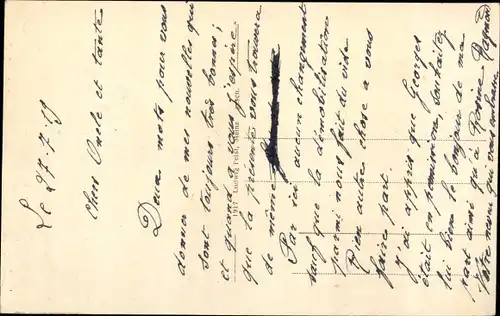 Le 27-7-19
Chers Oncle et tante
Deux mots pour vous
donner de mes nouvelles qui
sont toujours très bonnes;
et quand a vous j'espère
que la présente vous trouvera
de même
Par ici aucun changement
sauf que la démobilisation
parmi nous fait du vide
Rien autre chose a vous
faire part
J'ai appris que Georges
était en permission, souhaitez
lui bien le bonjour de ma
part ainsi qu'à Rosine
Votre neveu qui vous embrasse
1917 Ludwig Feist, Mainz